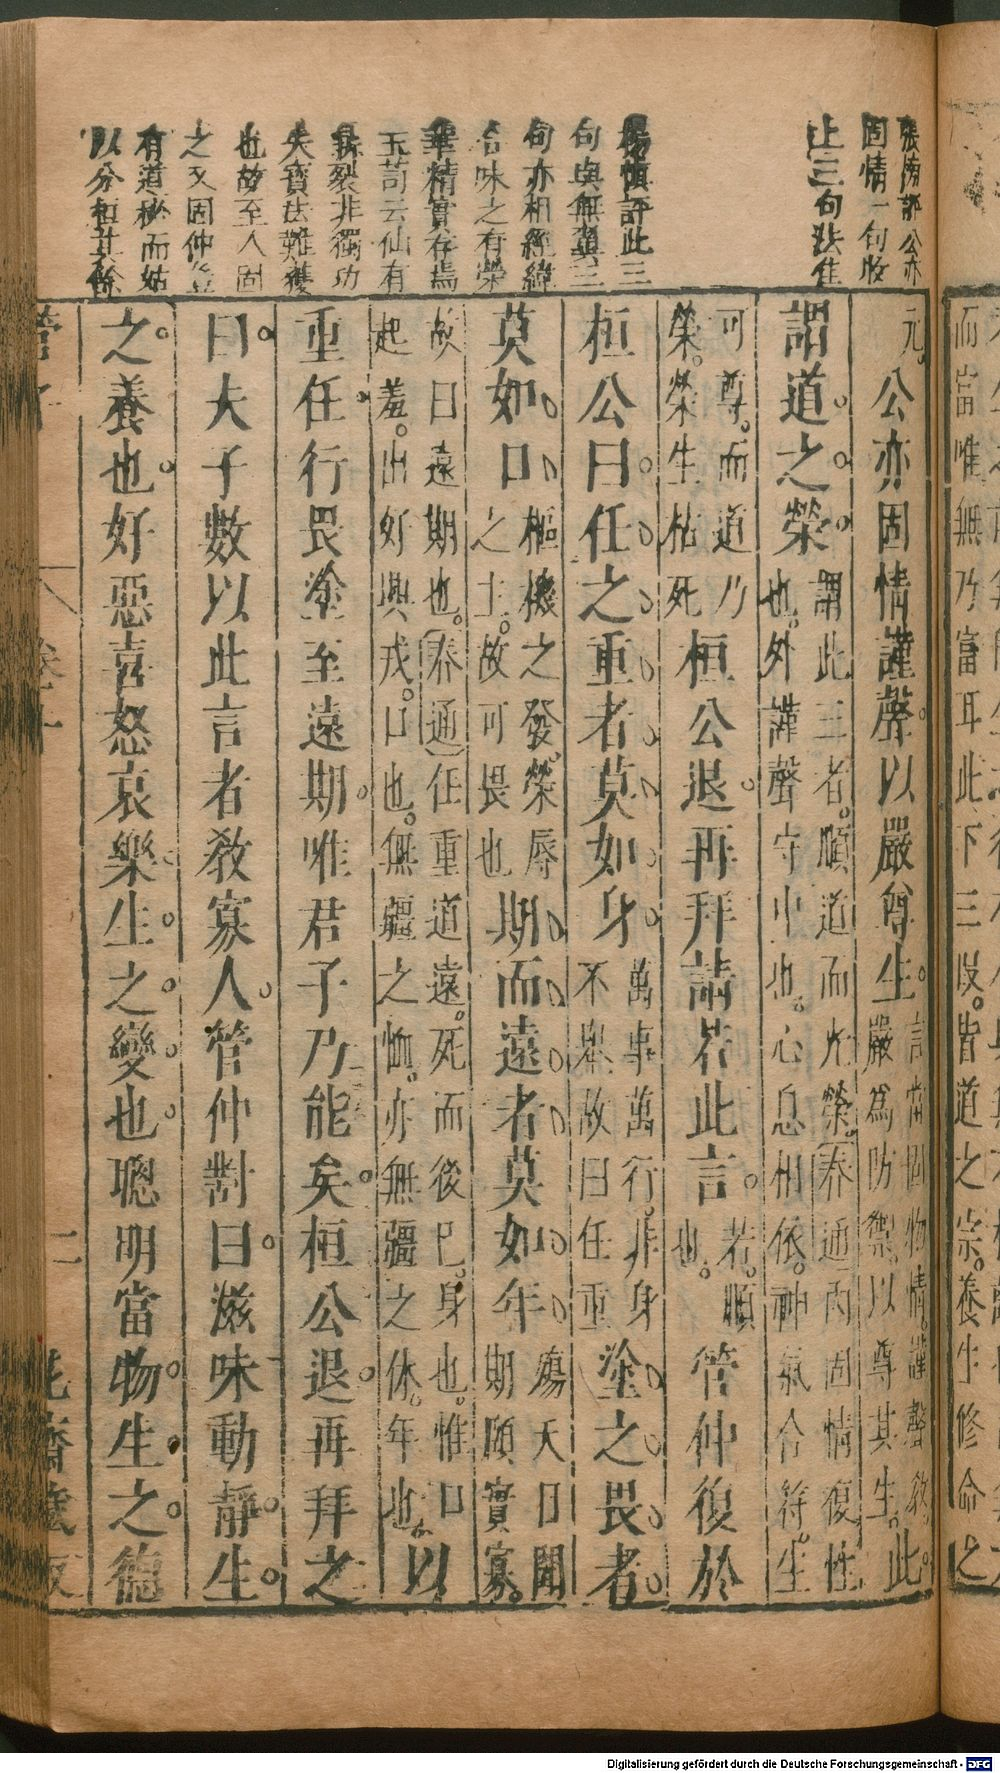 張榜評公亦
固情一句收
上三句
楊慎評此三
句與無翼三
句亦相經緯
合味之有榮
華精實存焉
玉苛云仙有
裂非獨功
失寶法難獲
也故至人固
之又固仲
有道秘而姑
以分桓其餘
元公亦固情謹聲以嚴尊生言當固物情謹聲教
嚴爲防禦以尊其生此
謂道之榮謂此三者順道而光榮春通丙固情復性
也外謹聲守中也心息相依神氣合符生
可尊而道乃
榮榮生枯死桓公退再拜請若此言若順
也管仲復於
桓公曰任之重者莫如身萬事萬行非身
不舉故曰任重塗之畏者
莫如口樞機之發榮辱
之主故可畏也期而遠者莫如年殤夭日聞
期頤實寡
故曰遠期也春通任重道遠死而後已身也惟口
起羞出好興戎口也無疆之恤亦無疆之休年也以
重任行畏塗至遠期唯君子乃能矣桓公退再拜之
曰夫子數以此言者教寡人管仲對曰滋味動靜生
之養也好惡喜怒哀樂生之變也聰明當物生之德
管子
卷十
二
花齋藏板
而富唯無乃富耳此下三段皆道之宗養生修命之
Digitalisierung gefördert durch die Deutsche Forschungsgemeinschaft - DFG